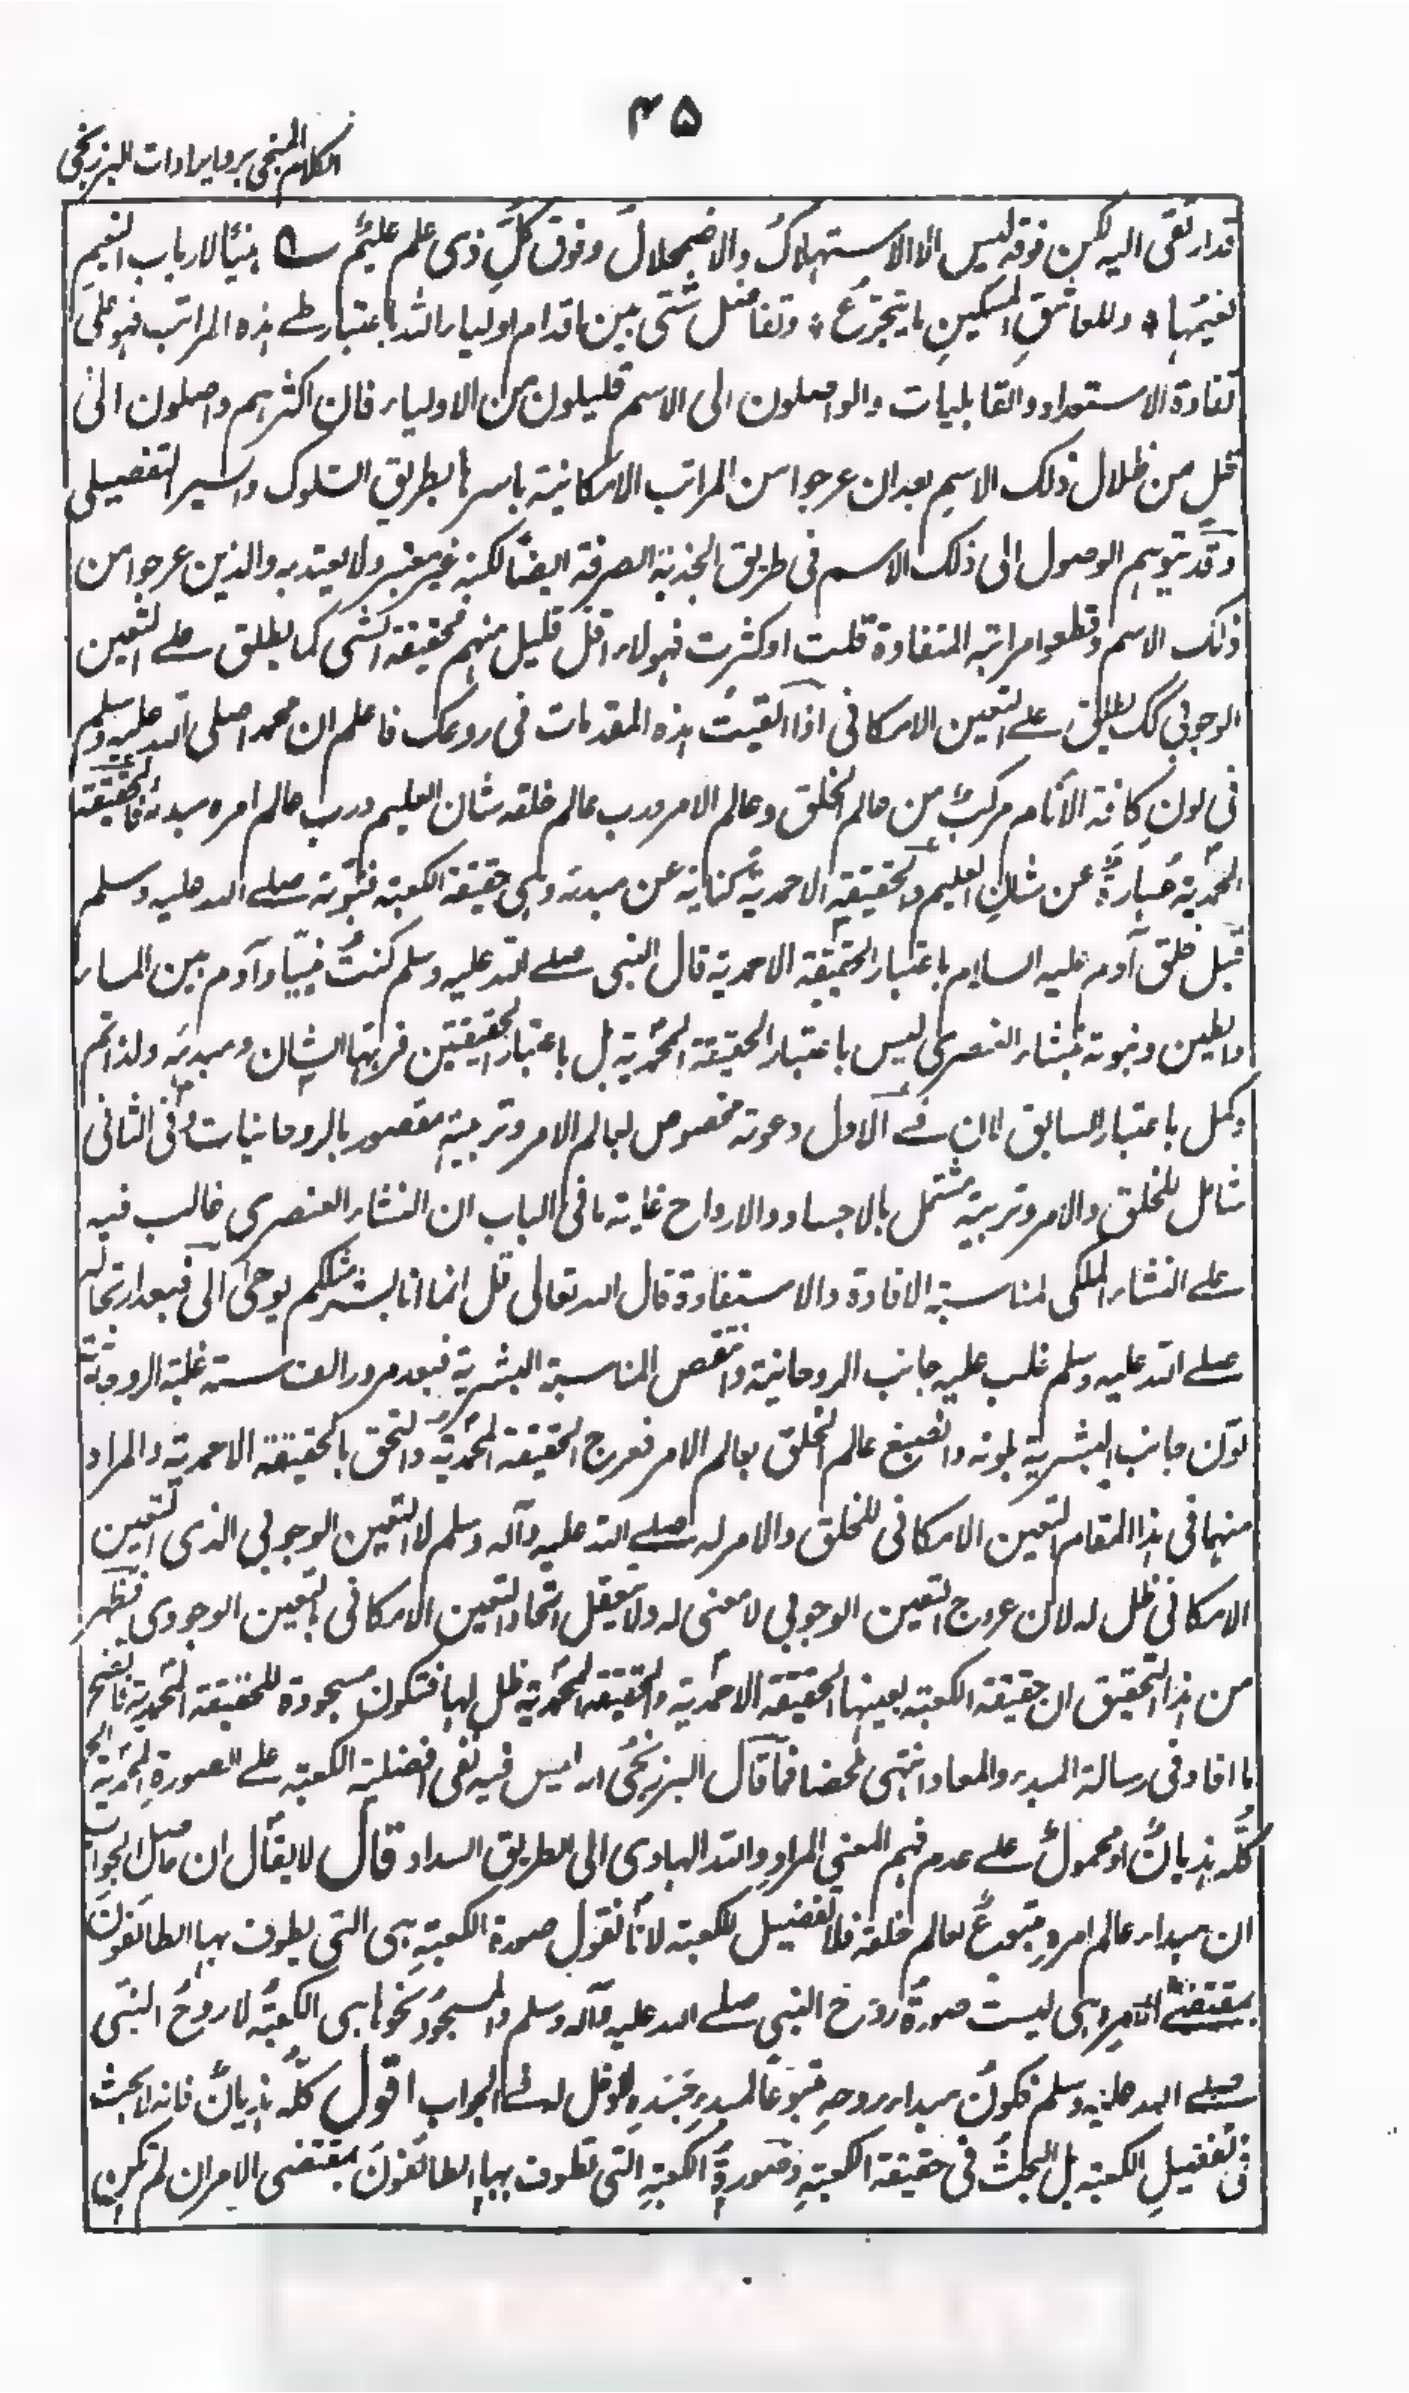 ۴۵
الكلام المنجي برد ايرادات البرزنجي
قد ارتقى اليه لكن فوقه ليس الا الاستهلاك والاضمحلال وفوق كل ذي علم عليم ه هنيئا لارباب النعيم
نعيمها * وللعاشق المسكين ما يتجرع * وتفاضل شتى بين اقدام اولياء الله باعتبار طے هذه المراتب فهو على
تفاوة الاستعداد والقابليات والواصلون الى الاسم قليلون من الاولياء فان اكثرهم واصلون الى
ظل من ظلال ذلك الاسم بعد ان عرجوا من المراتب الامكانية باسرها بطريق السلوك والسير التفصيلي
وقد يتوهم الوصول الى ذلك الاسم في طريق الجذبة الصرفة ايضا لكنه غير معتبر ولا يعتد به والذين عرجوا من
ذلك الاسم وقطعوا مراتبه المتفاوة قلت او كثرت فهولاء اقل قليل منهم حقيقة الشى كما يطلق علے التعين
الوجوبي كك يطلق علے التعين الامكاني اذا القيت هذه المقدمات في روعك فاعلم ان محمدا صلى الله عليه وسلم
في لون كافة الانام مركب من عالم الخلق وعالم الامر ورب عالم خلقه شان العليم ورب عالم امره مبدئه فالحقيقة
المحمدية عبارة عن شان العليم والحقيقة الاحمدية كناية عن مبدئه وهي حقيقة الكعبة فنبوته صلے الله عليه وسلم
قبل خلق آدم عليه السلام باعتبار الحقيقة الاحمدية قال النبي صلے الله عليه وسلم كنت نبيا وآدم بين الماء
والطين ونبوته بنشاء العنصري ليس باعتبار الحقيقة المحمدية بل باعتبار الحقيقتين فربتها الشان ومبدئه ولذا تم
وكمل باعتبار السابق لان في الاول دعوته مخصوص بعالم الامر وتربيته مقصور بالروحانيات وفي الثاني
شامل للخلق والامر وتربيته مشتمل بالاجساد والارواح غاية ما في الباب ان النشاء العنصري غالب فيه
علے النشاء الملكى لمناسبة الافادة والاستفادة قال الله تعالى قل انما انا بشر مثلكم يوحى الي فبعد ارتحاله
صلے الله عليه وسلم غلب عليه جانب الروحانية وانتقص المناسبة البشرية فبعد مرور الف سنة غلبة الروحانية
لون جانب البشرية بلونه وانصبغ عالم الخلق بعالم الامر فعرج الحقيقة المحمدية والتحق بالحقيقة الاحمدية والمراد
منها في هذا المقام التعين الامكاني للخلق والامر له صلے الله عليه وآله وسلم لا التعين الوجوبي الذي التعين
الامكاني ظل له لان عروج التعين الوجوبي لا معنى له ولا يتعقل اتحاد التعين الامكاني بالتعين الوجودي فظهر
من هذا التحقيق ان حقيقة الكعبة بعينها الحقيقة الاحمدية والحقيقة المحمدية ظل لها فتكون مسجودة للحقيقة المحمدية فاتضح
ما افاد في رسالة المبدء والمعاد انتهى لمخضا فما قال البرزنجي اد ليس فيه نفى افضلية الكعبة علے الصورة المحمدية الخ
كله هذيان او محمول علے عدم فهم المعنى المراد والله الهادى الى الطريق السداد قال لا يقال ان حاصل الجواب
ان مبداء عالم امره متبوع لعالم خلقه فلا تفضيل للكعبة لانا نقول صورة الكعبة هى التى يطوف بها الطائفون
بمقتضے الامر وهى ليست صورة روح النبي صلے الله عليه وآله وسلم والمسجود نحوها هى الكعبة لا روح النبي
صلے الله عليه وسلم فكون مبداء روحه متبوعا لمبدء جسده لا دخل له فے الجواب اقول كله هذيان فانه لا بحث
في تفضيل الكعبة بل البحث في حقيقة الكعبة وصورة الكعبة التى تطوف بها الطائفون بمقتضى الامر ان لم تكن